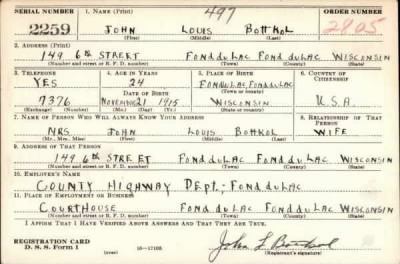 SERIAL NUMBER 1. NAME (Print) 497 ORDER NUMBER
2259 JOHN LOUIS BOTTKOL 2805
(First) (Middle) (Last)
2. ADDRESS (Print)
149 6th STREET FOND DU LAC FOND DU LAC WISCONSIN
(Number and street or R. F. D. number) (Town) (County) (State)
3. TELEPHONE 4. AGE IN YEARS 5. PLACE OF BIRTH 6. COUNTRY OF CITIZENSHIP
YES 24 FONDDULAC, FONDDULAC
DATE OF BIRTH (Town or county)
7376 NOVEMBER 21 1915 WISCONSIN U.S.A.
(Exchange) (Number) (Mo.) (Day) (Yr.) (State or country)
7. NAME OF PERSON WHO WILL ALWAYS KNOW YOUR ADDRESS 8. RELATIONSHIP OF THAT PERSON
MRS. JOHN LOUIS BOTTKOL WIFE
(Mr., Mrs., Miss) (First) (Middle) (Last)
9. ADDRESS OF THAT PERSON
149 6th STREET FOND DU LAC FOND DU LAC WISCONSIN
(Number and street or R. F. D. number) (Town) (County) (State)
10. EMPLOYER'S NAME
COUNTY HIGHWAY DEPT., FOND DU LAC
11. PLACE OF EMPLOYMENT OR BUSINESS
COURTHOUSE FOND DU LAC FOND DU LAC WISCONSIN
(Number and street or R. F. D. number) (Town) (County) (State)
I AFFIRM THAT I HAVE VERIFIED ABOVE ANSWERS AND THAT THEY ARE TRUE.
REGISTRATION CARD
D. S. S. Form 1 (over) 16—17105 John L Bottkol
(Registrant's signature)